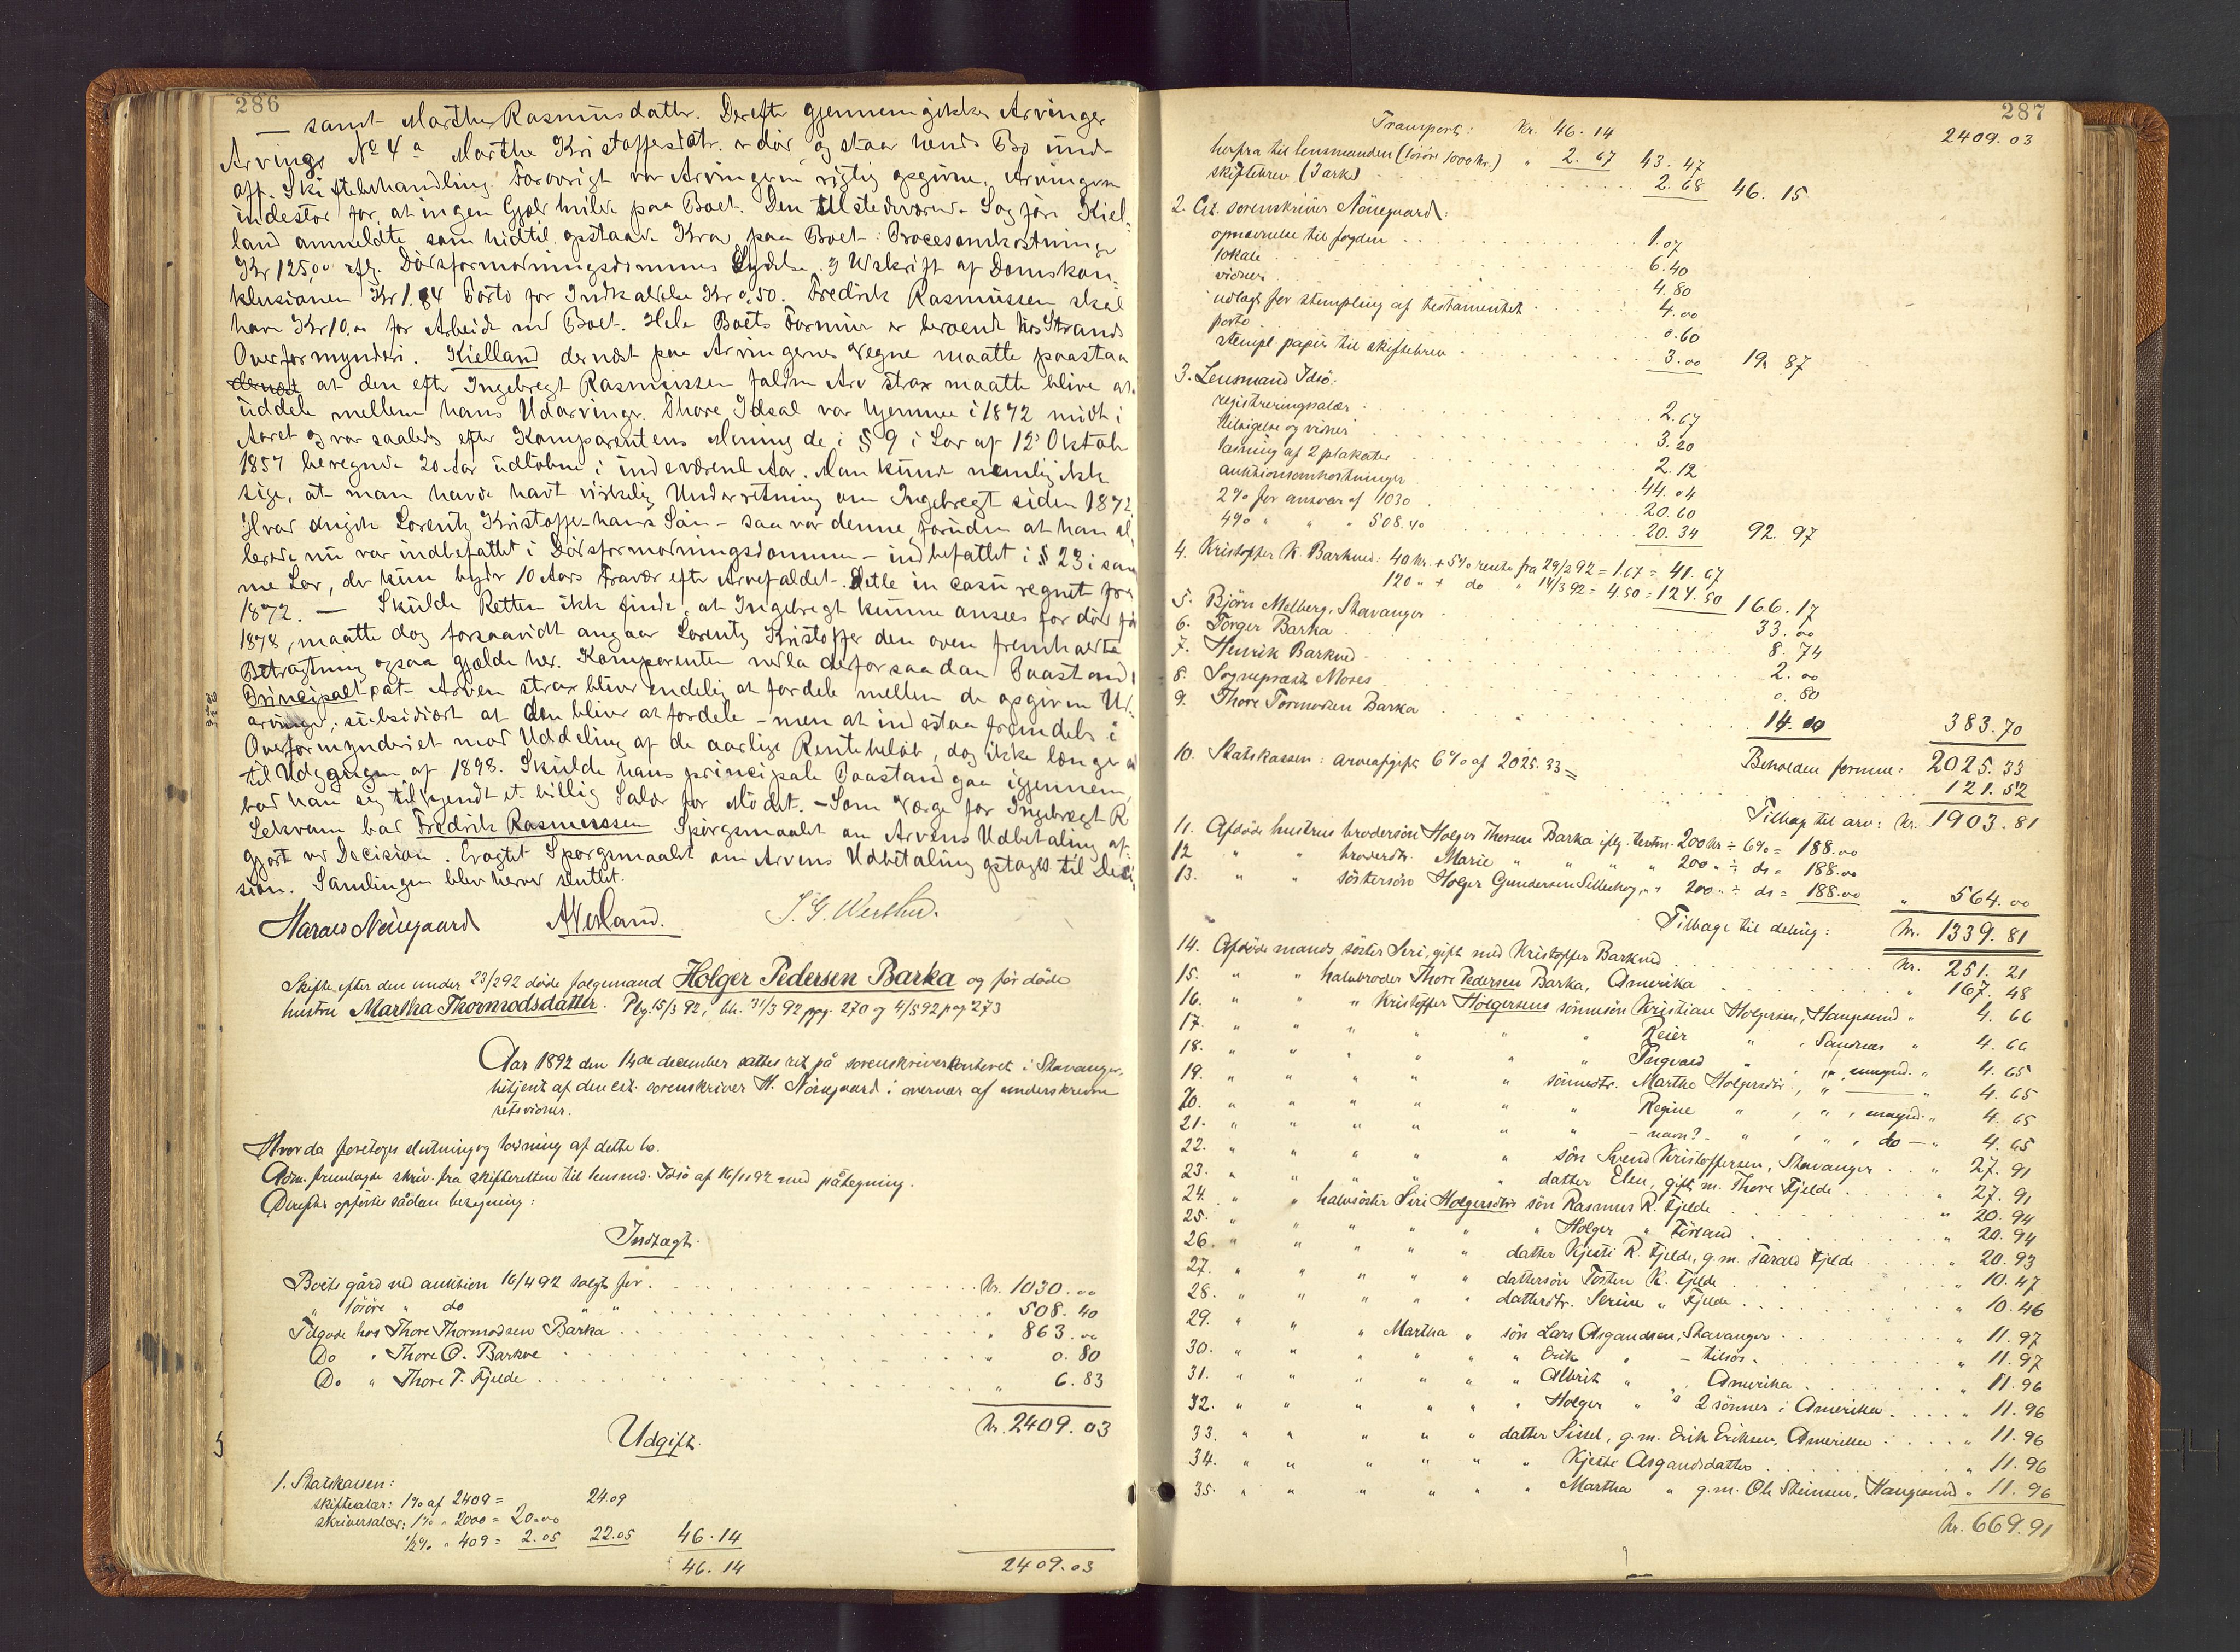 286
— samt Marthe Rasmusdatter. Derefter gjennemgikkes Arvinger
Arvings No 4 a Marthe Kristoffersdtr. er død og staar hendes Bo under
off. Skiftebehandling. Forøvrigt var Arvingerne rigtig opgivne. Arvingerne
indestod for at ingen Gjæld hvilede paa Boet. Den tilstedeværende Sagfører Kiel-
land anmeldte som hidtil opstaaede Krav paa Boet: Procesomkostninger
Kr 125,00 iflg. Dødsformodningsdommens Lydelse og Udskrift af Domskon-
klusionen Kr 1.84 Porto for Indkaldelse Kr 0,50. Fredrik Rasmussen skal
have Kr 10.00 for Arbeide ved Boet. Hele Boets Formue er beroende hos Strands
Overformynderi. Kielland dernæst paa Arvingernes Vegne maatte paastaa
at den efter Ingebregt Rasmussen faldne Arv strax maatte blive at
uddele mellem hans Udarvinger. Thore Idsal var hjemme i 1872 midt i
Aaret og var saaledes efter Komparentens Mening de i § 9 i Lov af 12 Oktob
1857 beregnede 20 Aar udløbne i indeværende Aar. Man kunde nemlig ikke
sige, at man havde havt virkelig Underretning om Ingebregt siden 1872.
Hvad angik Lorentz Kristoffer hans Søn – saa var denne, foruden at han al-
lerede nu var indbefattet i Dødsformodningsdommen – indbefattet i § 23 i sam
me Lov, der kun byder 10 Aars Fravær efter Arvefaldet. Dette in casu regnet fra
1872. — Skulde Retten ikke finde, at Ingebregt kunne ansees for død før
1878, maatte dog forsaavidt angaar Lorentz Kristoffer den oven fremholdte
Betragtning ogsaa gjælde her. Komparenten nedla derfor saadan Paastand:
Principalt at Arven strax bliver endelig at fordele mellem de opgivne Ud-
arvinger; subsidiært at den bliver at fordele – men at indestaa fremdeles i
Overformynderiet mod Uddeling af de aarlige Rentebeløb, dog ikke længer end
til Udgangen af 1898. Skulde hans principale Paastand gaa igjennem,
bad han sig tilkjendt et billig Salær for Mødet. – Som Værge for Ingebregt R
Lekvam bad Fredrik Rasmussen Spørgsmaalet om Arvens Udbetaling af-
gjort ved Decision. Eragtet Spørgsmaalet om Arvens Udbetaling optages til Deci-
sion. Samlingen blev herved sluttet.
Harald Nørregaard
Skifte efter den under 23/2 92 døde føderaadsmand Holger Pedersen Barka og før døde
hustru Martha Thormodsdatter. Plg. 15/3 92, beh. 31/3 92 pag. 270 og 4/5 92 pag 273
Aar 1892 den 14de december sattes ret på sorenskriverkontoret i Stavanger,
betjent af den cst. sorenskriver H. Nørregaard i overvær af underskrevne
retsvidner.
Hvorda foretoges slutning og lodning af dette bo.
Adm. fremlagte skriv. fra skifteretten til lensmd. Idsø af 16/11 92 med påtegning.
Derefter opførtes sådan beregning:
Indtægt.
Boets gård ved auktion 16/4 92 solgt for . Kr. 1030.00
" løsøre " do " " . " 508.40
Tilgode hos Thore Thormodsen Barka . " 863.00
Do " Thore O. Barkve . " 0.80
Do " Thore T. Fjelde . " 6.83
Kr. 2409.03
Udgift.
1. Statskassen:
skiftesalær: 1% af 2409 = 24.09
skriversalær: 1% " 2000 = 20.00
1/2% " 409 = 2.05 22.05 46.14
46.14 2409.03
287
Transport: Kr. 46.14 2409.03
herfra til lensmanden (løsøre 1000 kr.) " 2.67 43.47
skiftebrev (3 ark) 2.68 46.15
2. Cst. sorenskriver Nörregaard:
opnævnelse til fogden 1.07
lokale 6.40
vidner 4.80
udlagt for stempling af testamentet 4.00
porto 0.60
stempl. papir til skiftebrev 3.00 19.87
3. Lensmand Idsö:
registreringssalær 2.67
tilsigelse og vidner 3.20
læsning af 2 plakater 2.12
auktionsomkostninger 44.04
2% for ansvar af 1030 20.60
4% " " " 508.40 20.34 92.97
4. Kristoffer K. Barkved: 40 kr. + 5% rente fra 29/2 92 = 1.67 = 41.67
120 " + do " 14/3 92 = 4.50 = 124.50 166.17
5. Björn Melberg, Stavanger 33.00
6. Torger Barka 8.74
7. Henrik Barkved 2.00
8. Sogneprest Moses 0.80
9. Thore Tormodsen Barka 14.00 383.70
Beholden formue: 2025.33
10. Statskassen: arveafgift 6% af 2025.33 = 121.52
Tilbage til arv: Kr. 1903.81
11. Afdöde hustrus brodersön Holger Thorsen Barka iflg. testm. 200 kr ÷ 6% = 188.00
12 " " broderdtr. Marie " " " " 200 " ÷ do = 188.00
13. " " søstersøn Holger Gundersen " " 200 " ÷ do = 188.00 " 564.00
Tilbage til deling: Kr. 1339.81
14. Afdöde mands söster Seri, gift med Kristoffer Barkved Kr. 251.21
15. " " halvbroder Thore Pedersen Barka, Amerika " 167.48
16. " " " Kristoffer Holgersens sönnesön Kristian Holgersen, Haugesund " 4.66
17. " " " " " Reier " , Sandnæs " 4.66
18. " " " " " Ingvald " , " , umynd. " 4.65
19. " " " " sønnedtr. Marthe Holgersdtr. , " — " 4.65
20. " " " " " Regine " , " , umynd. " 4.65
21. " " " " " – navn? – " , " , do — " 4.65
22. " " " " sön Svend Kristoffersen, Stavanger " 27.91
23. " " " " datter Elen, gift m. Thore Fjelde " 27.91
24. " " halvsöster Seri Holgersdtrs sön Rasmus R. Fjelde " 20.94
25. " " " " " Holger " Førland " 20.94
26. " " " " datter Kjesti R. Fjelde, g.m. Tarald Fjelde " 20.93
27. " " " " dattersön Tosten K. Fjelde " 10.47
28. " " " " datterdtr. Serine " Fjelde " 10.46
29. " " " Martha " sön Lars Asgaudsen, Stavanger " 11.97
30. " " " " " " Erik " – tilsös. " 11.97
31. " " " " " " Albrikt " , Amerika " 11.96
32. " " " " " " Holger " s 2 sönner i Amerika " 11.96
33. " " " " " datter Sissel, g.m. Erik Eriksen, Amerika " 11.96
34. " " " " " " Kjesti Asgaudsdatter " 11.96
35. " " " " " " Martha " g.m. Ole Steinsen, Haugesund " 11.96
Kr. 669.91